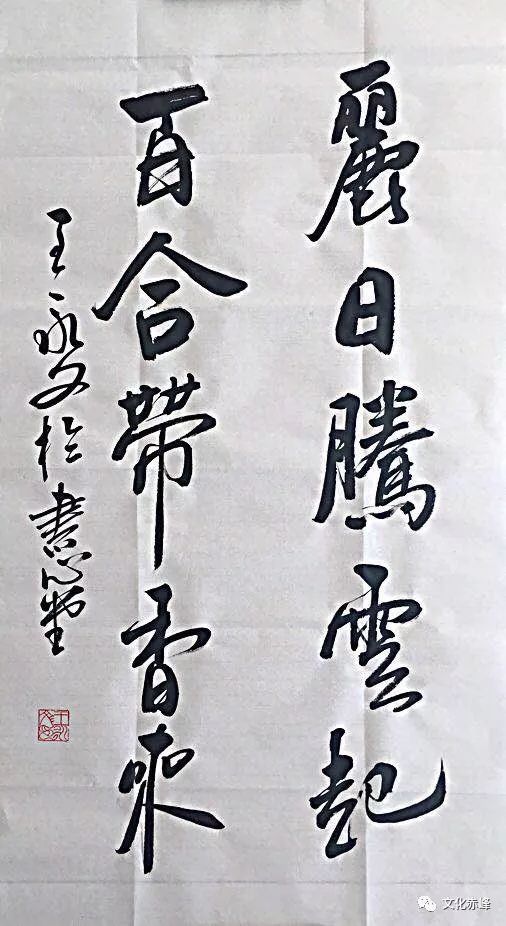 麗日騰雲起
百合帶香來
王永文於書心堂
王永文印
文化赤峰